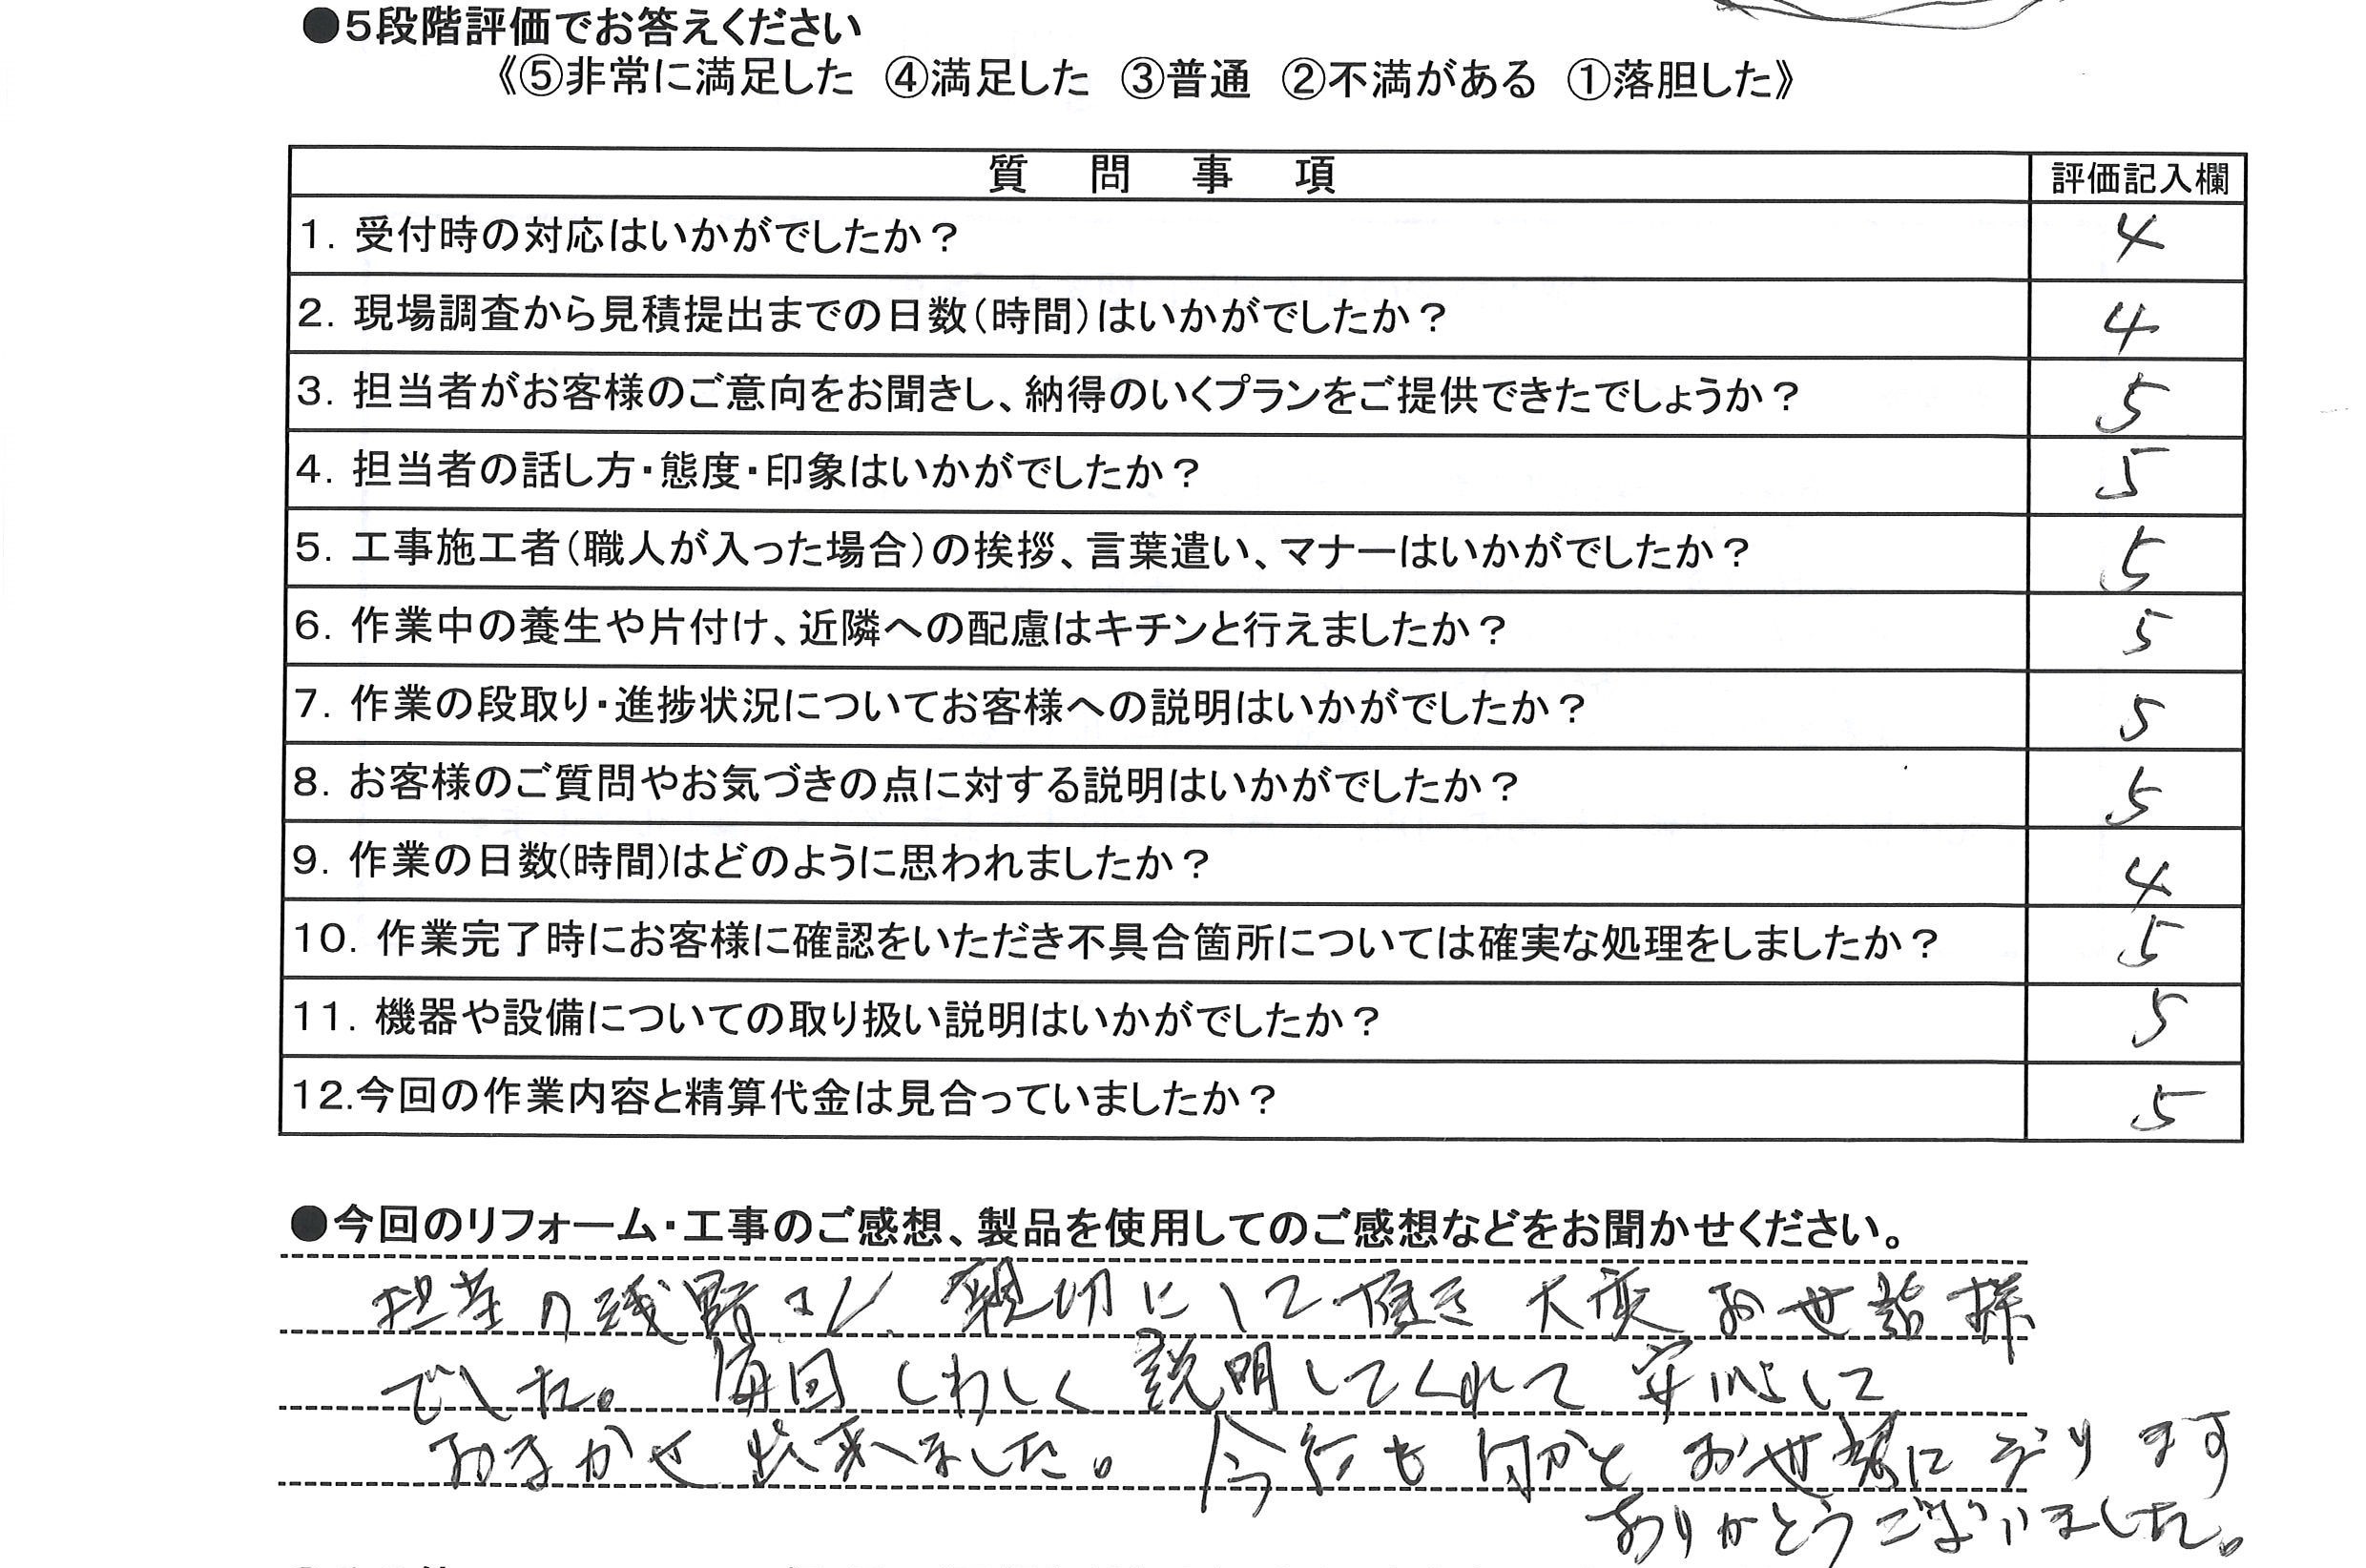 ●5段階評価でお答えください
《⑤非常に満足した ④満足した ③普通 ②不満がある ①落胆した》
質問事項 評価記入欄
1. 受付時の対応はいかがでしたか？ 4
2. 現場調査から見積提出までの日数(時間)はいかがでしたか？ 4
3. 担当者がお客様のご意向をお聞きし、納得のいくプランをご提供できたでしょうか？ 5
4. 担当者の話し方・態度・印象はいかがでしたか？ 5
5. 工事施工者(職人が入った場合)の挨拶、言葉遣い、マナーはいかがでしたか？ 5
6. 作業中の養生や片付け、近隣への配慮はキチンと行えましたか？ 5
7. 作業の段取り・進捗状況についてお客様への説明はいかがでしたか？ 5
8. お客様のご質問やお気づきの点に対する説明はいかがでしたか？ 5
9. 作業の日数(時間)はどのように思われましたか？ 4
10. 作業完了時にお客様に確認をいただき不具合箇所については確実な処理をしましたか？ 5
11. 機器や設備についての取り扱い説明はいかがでしたか？ 5
12.今回の作業内容と精算代金は見合っていましたか？ 5
●今回のリフォーム・工事のご感想、製品を使用してのご感想などをお聞かせください。
担当の 親切にして頂き 大変 お世話様
でした。 毎回 くわしく 説明してくれて 安心して
おまかせ 出来ました。 今後も 何かと お世話に なります
ありがとうございました。